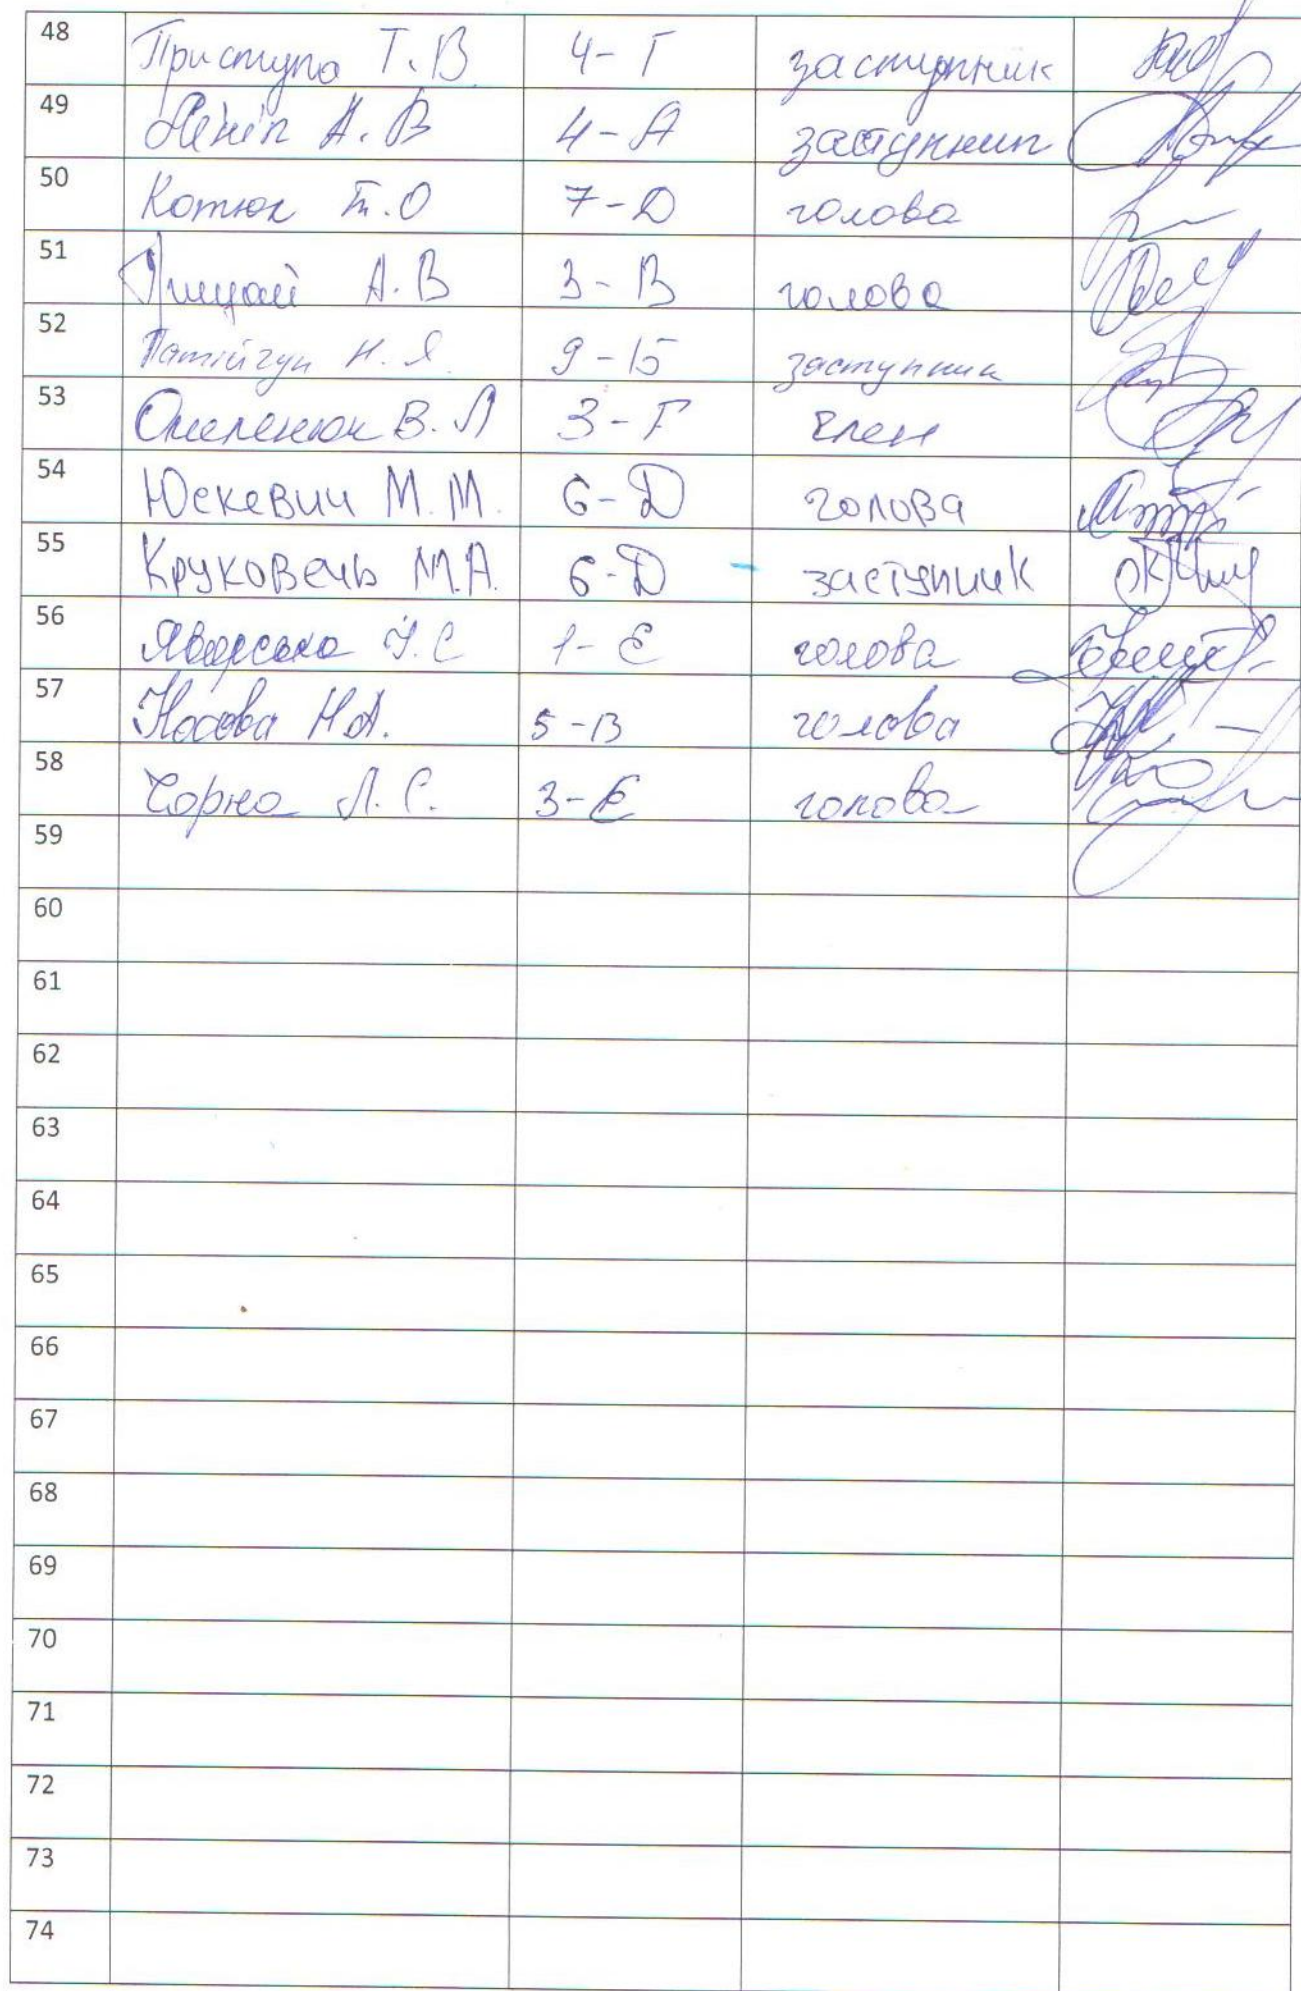 48 Приступа Т.В 4-Г заступник
49 А.В 4-А заступник
50 Котюк Т.О 7-Д голова
51 А.В 3-В голова
52 Н.Я. 9-Б заступник
53 Омеленюк В.Л 3-Г член
54 Юскевич М.М. 6-Д голова
55 Круковець М.А. 6-Д заступник
56 Яворська І.С 1-Є голова
57 Носова Н.А. 5-В голова
58 Чорна Л.С. 3-Є голова
59
60
61
62
63
64
65
66
67
68
69
70
71
72
73
74